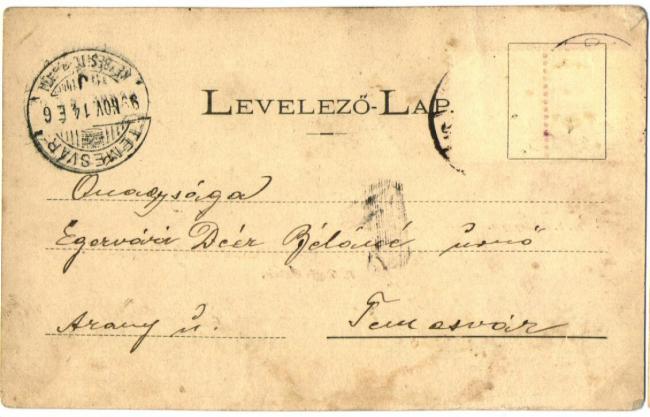 LEVELEZŐ-LAP.
TEMESVÁR
99 NOV. 14 E. 6
Őnagysága
Egervári Deér Béláné urnő
Arany u. Temesvár